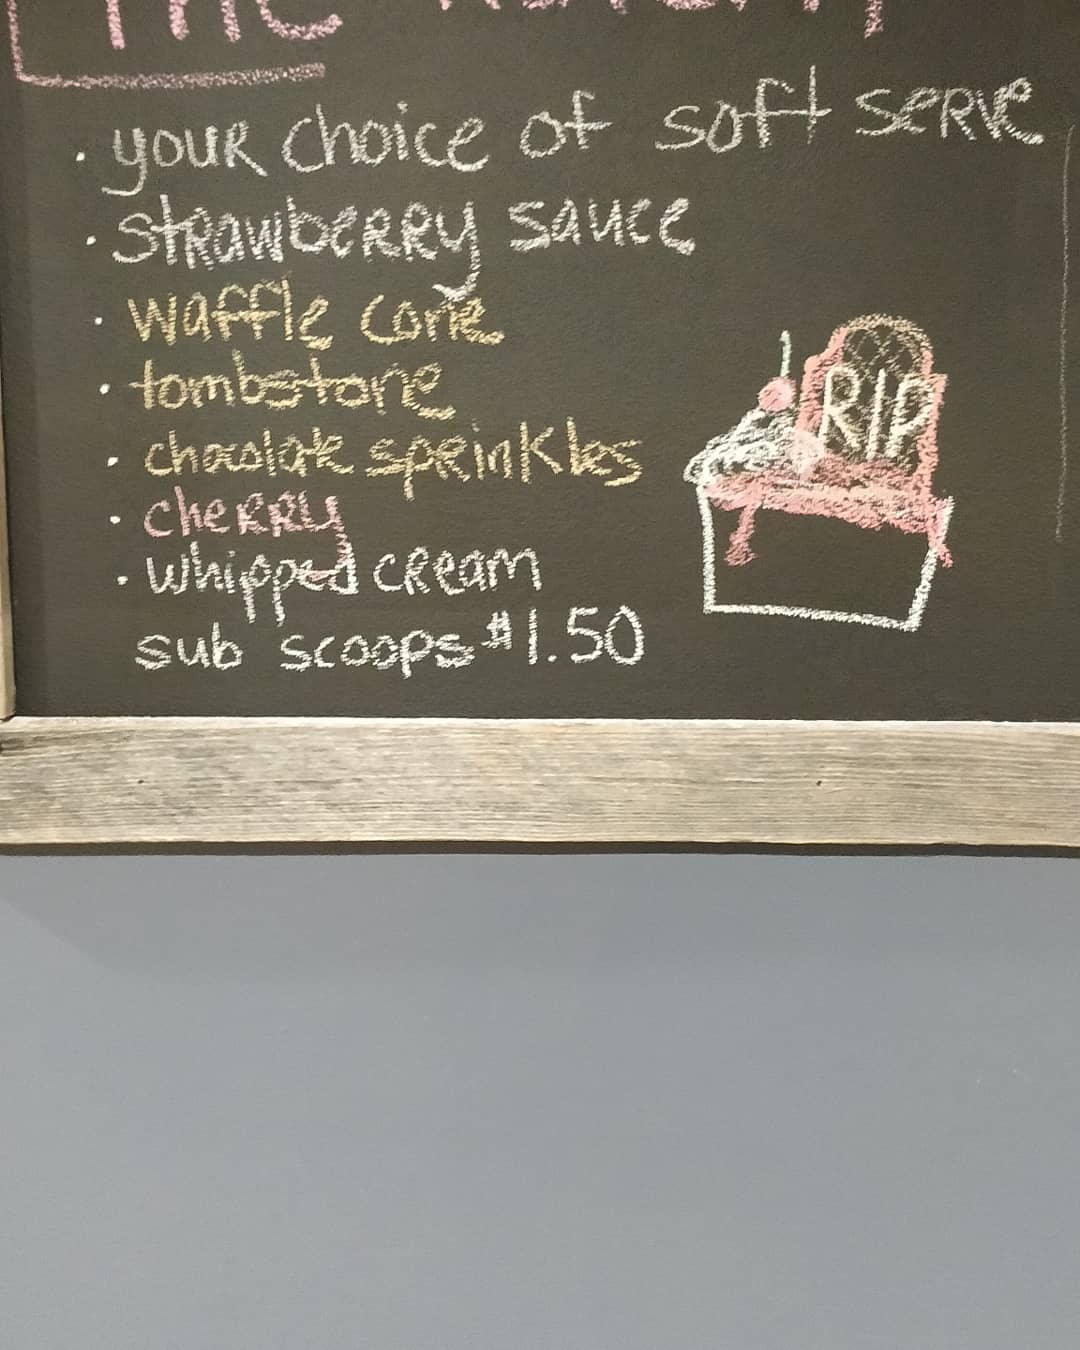 THE
• your choice of soft serve
• strawberry sauce
• waffle cone
• tombstone
• chocolate sprinkles
• cherry
• whipped cream
sub scoops $1.50
RIP